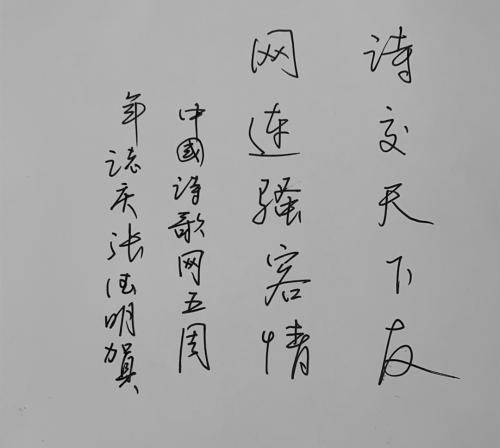 诗交天下友
网连骚客情
中國诗歌网五周
年誌庆张德明賀